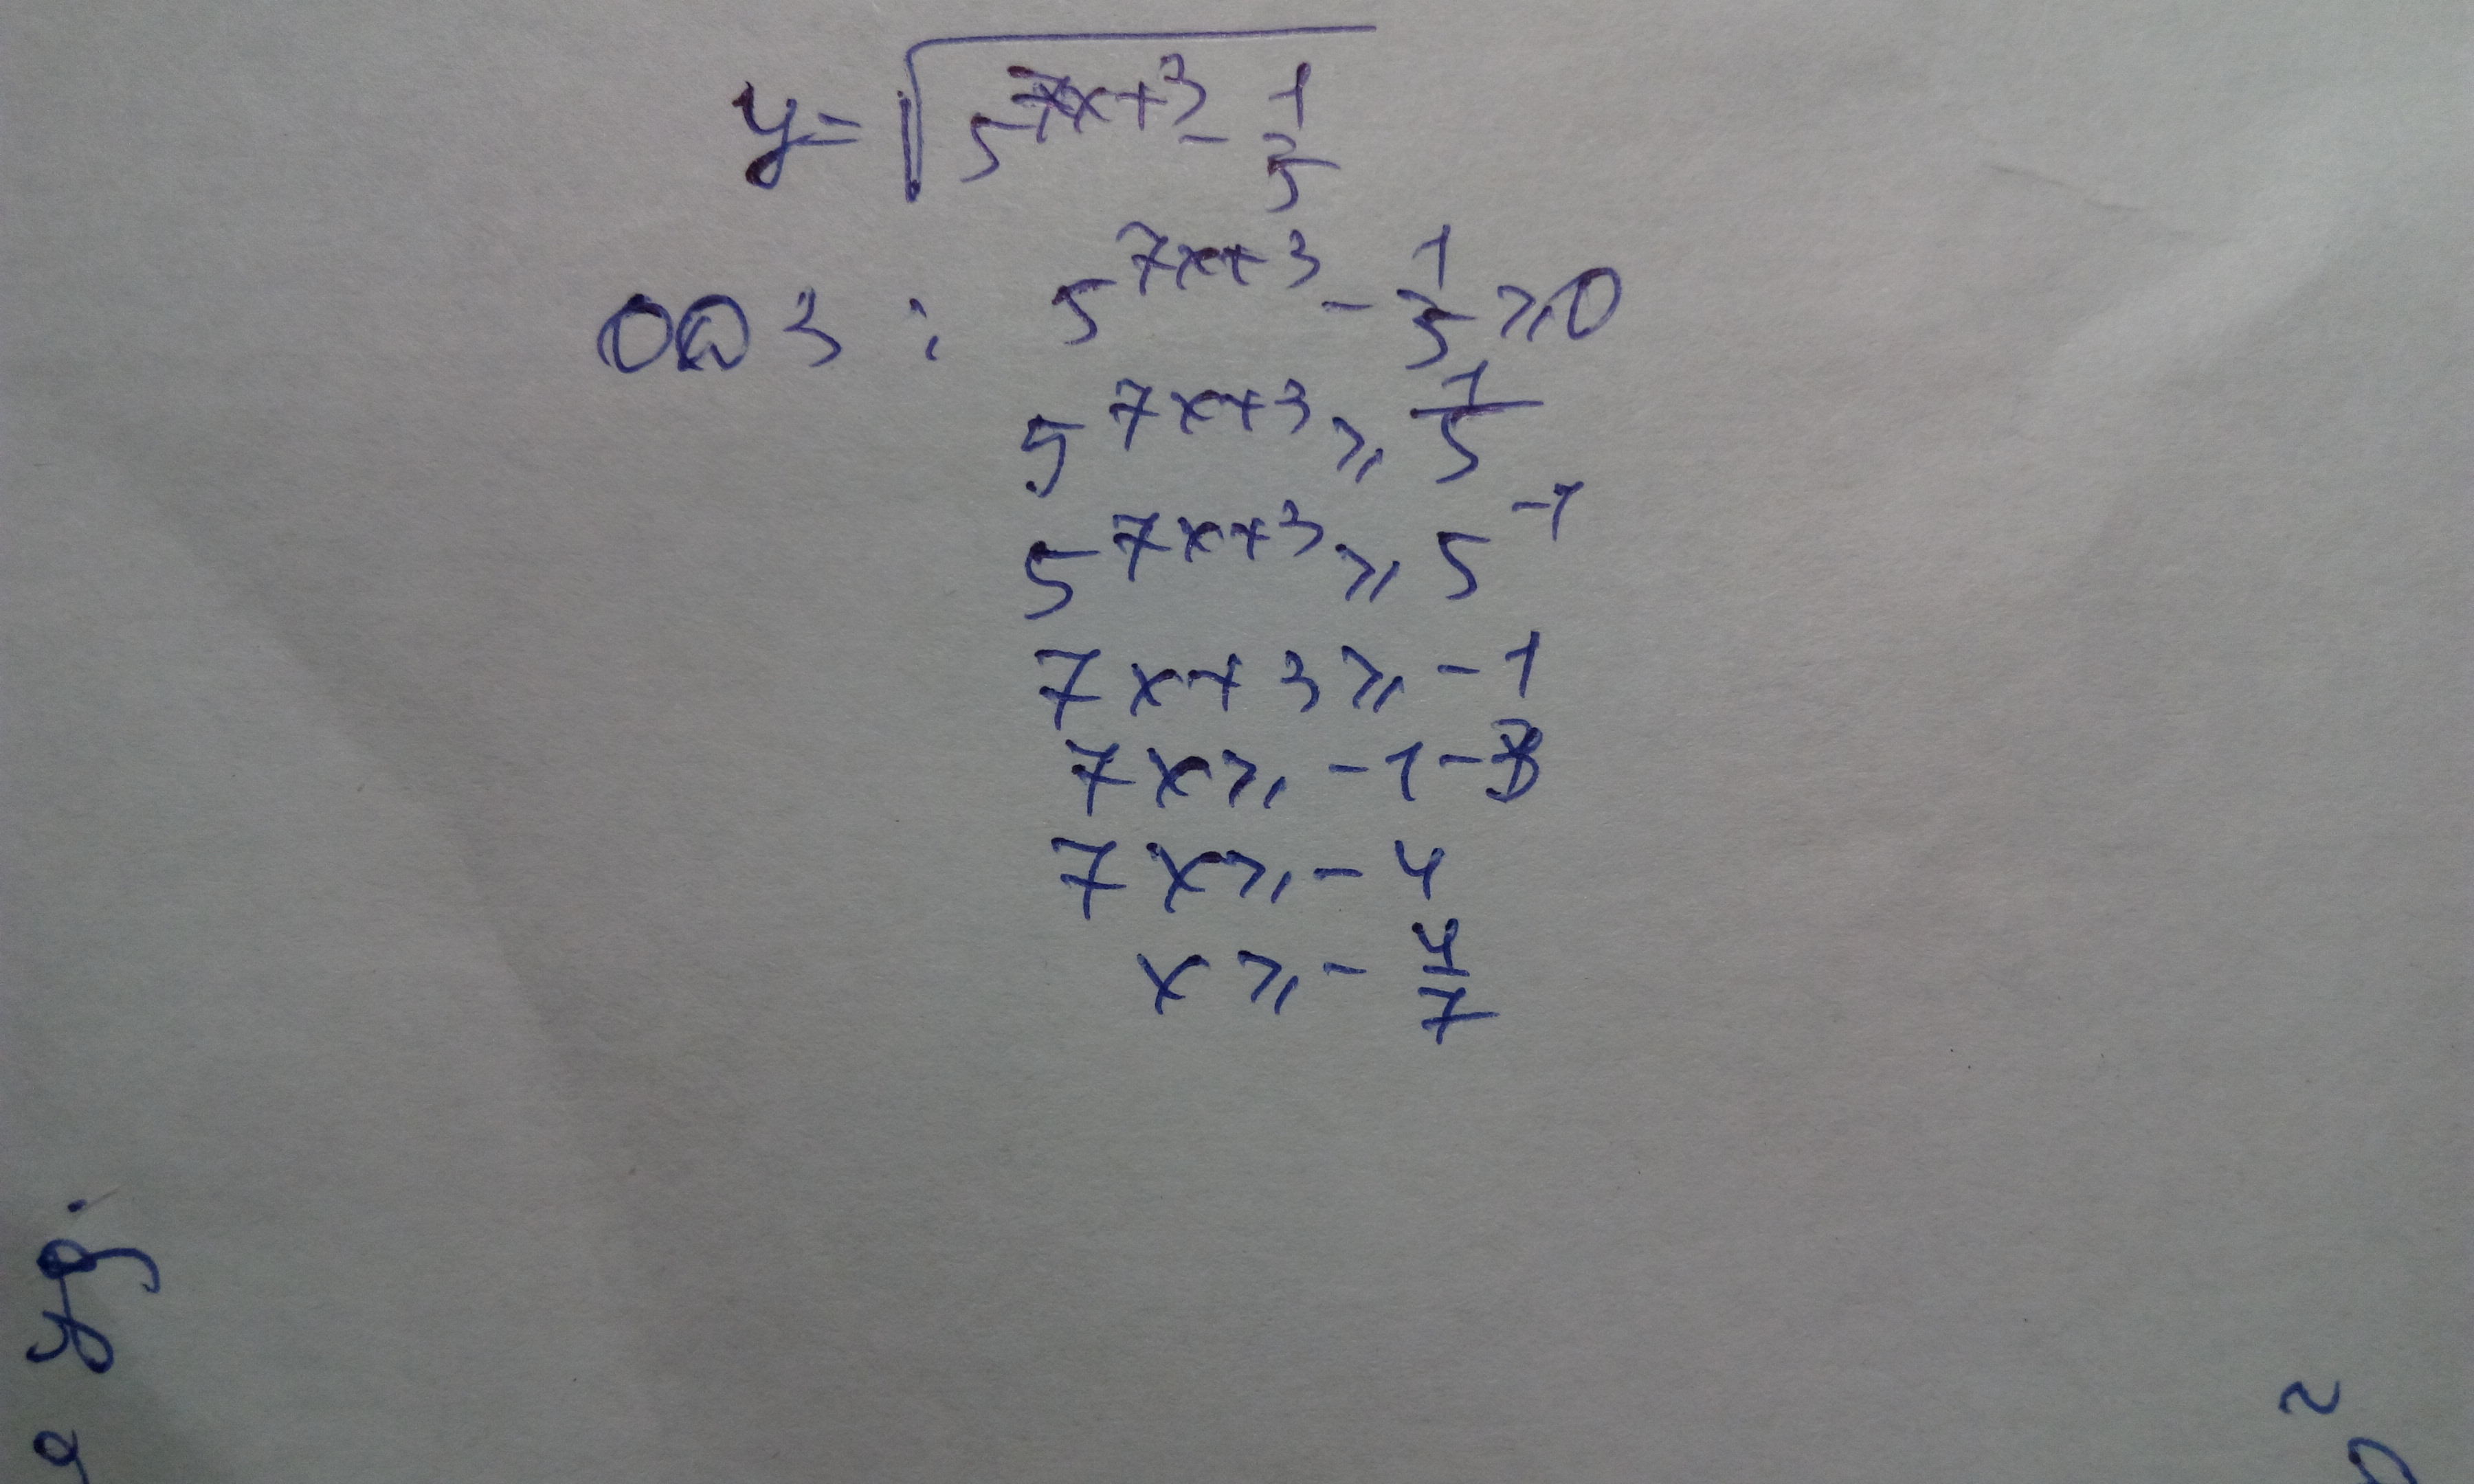 y = √(5^(7x+3) - 1/5)
ООЗ : 5^(7x+3) - 1/5 ⩾ 0
5^(7x+3) ⩾ 1/5
5^(7x+3) ⩾ 5^(-1)
7x + 3 ⩾ -1
7x ⩾ -1-3
7x ⩾ -4
x ⩾ - 4/7